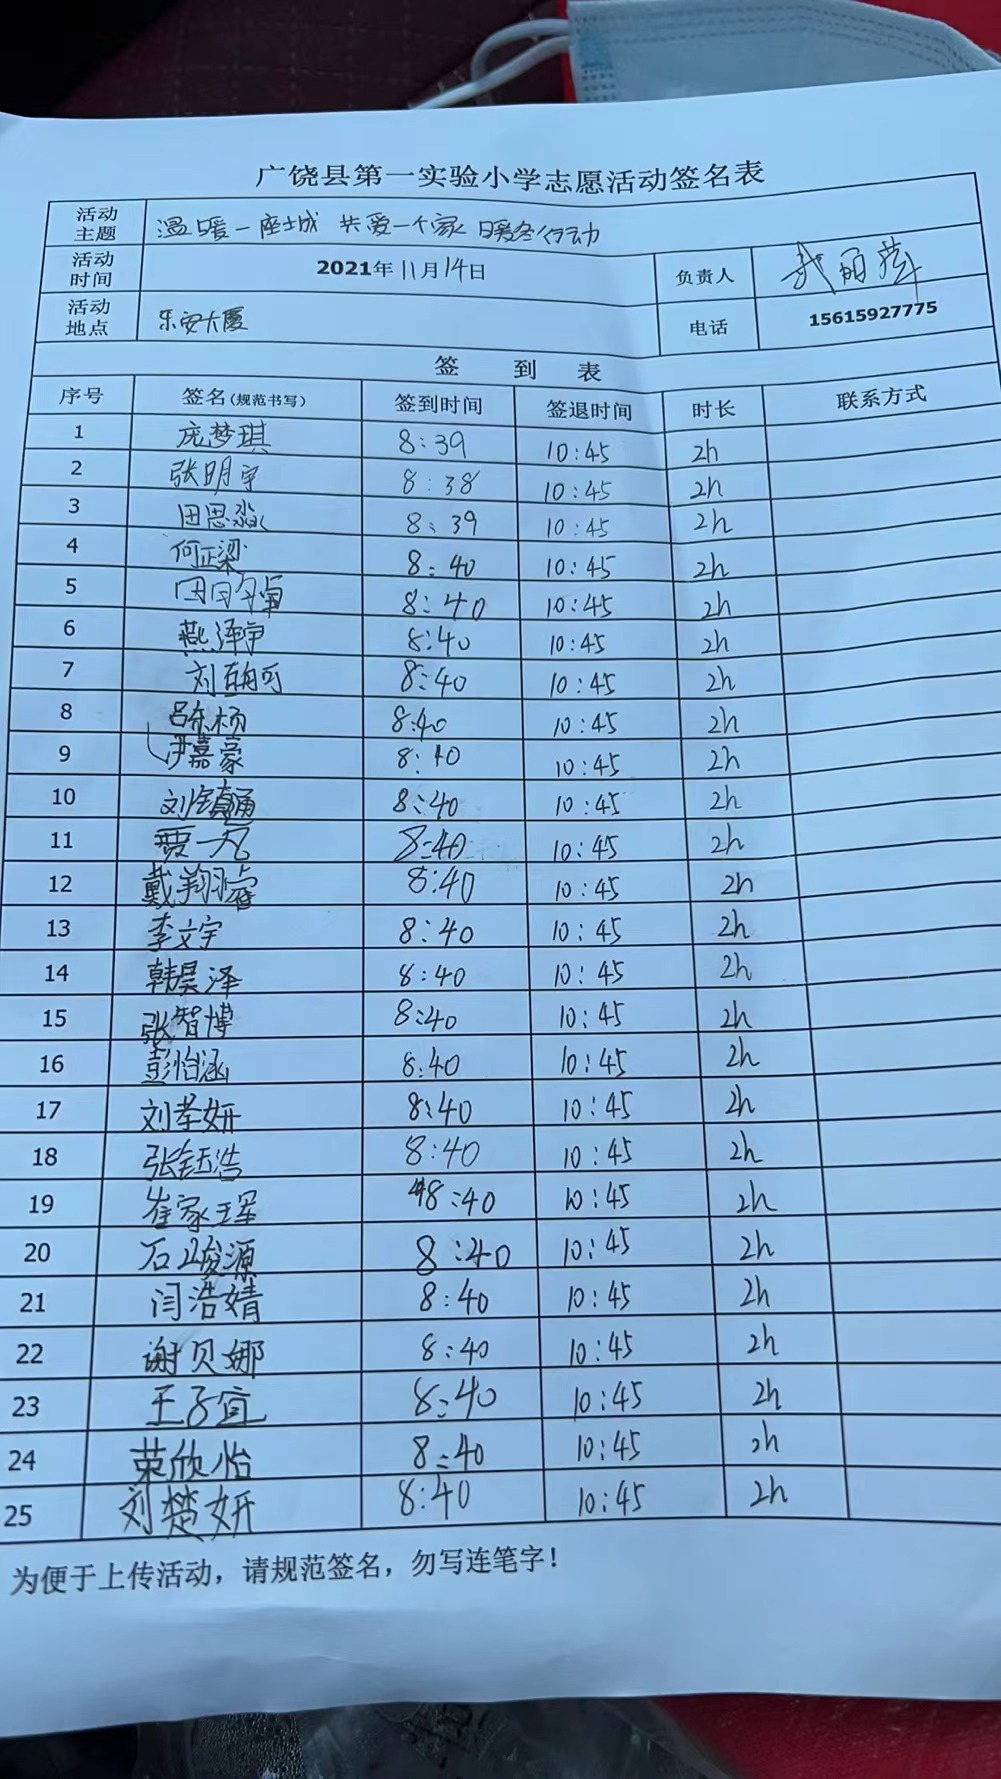 广饶县第一实验小学志愿活动签名表
活动主题 温暖一座城 共爱一个家 暖冬行动
活动时间 2021年11月14日 负责人
活动地点 乐安大厦 电话 15615927775
签 到 表
序号 签名(规范书写) 签到时间 签退时间 时长 联系方式
1 庞梦琪 8:39 10:45 2h
2 张明宇 8:38 10:45 2h
3 田思淼 8:39 10:45 2h
4 何正梁 8:40 10:45 2h
5 8:40 10:45 2h
6 燕泽宇 8:40 10:45 2h
7 刘 可 8:40 10:45 2h
8 吕东杨 8:40 10:45 2h
9 尹嘉豪 8:40 10:45 2h
10 刘镇通 8:40 10:45 2h
11 贾一凡 8:40 10:45 2h
12 戴翔睿 8:40 10:45 2h
13 李文宇 8:40 10:45 2h
14 韩昊泽 8:40 10:45 2h
15 张智博 8:40 10:45 2h
16 彭怡涵 8:40 10:45 2h
17 刘孝妍 8:40 10:45 2h
18 张钰浩 8:40 10:45 2h
19 崔家珲 8:40 10:45 2h
20 石峻源 8:40 10:45 2h
21 闫浩婧 8:40 10:45 2h
22 谢贝娜 8:40 10:45 2h
23 王子宜 8:40 10:45 2h
24 荣欣怡 8:40 10:45 2h
25 刘楚妍 8:40 10:45 2h
为便于上传活动，请规范签名，勿写连笔字！